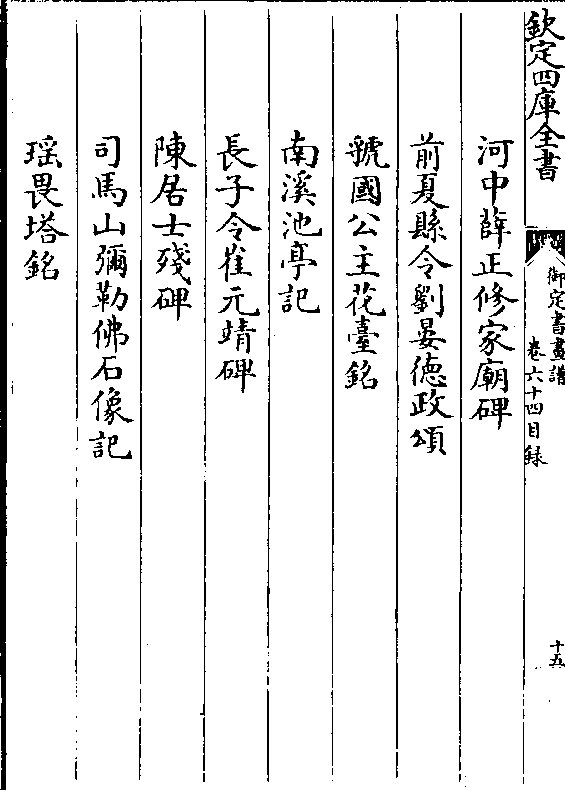 欽定四庫全書
御定書畫譜
卷六十四目録
十五
河中薛正修家廟碑
前夏縣令劉晏德政頌
虢國公主花臺銘
南溪池亭記
長子令崔元靖碑
陳居士殘碑
司馬山彌勒佛石像記
瑶畏塔銘